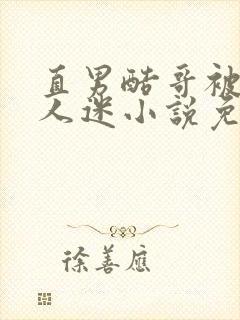 直男酷哥被
人迷小說免
徐善應